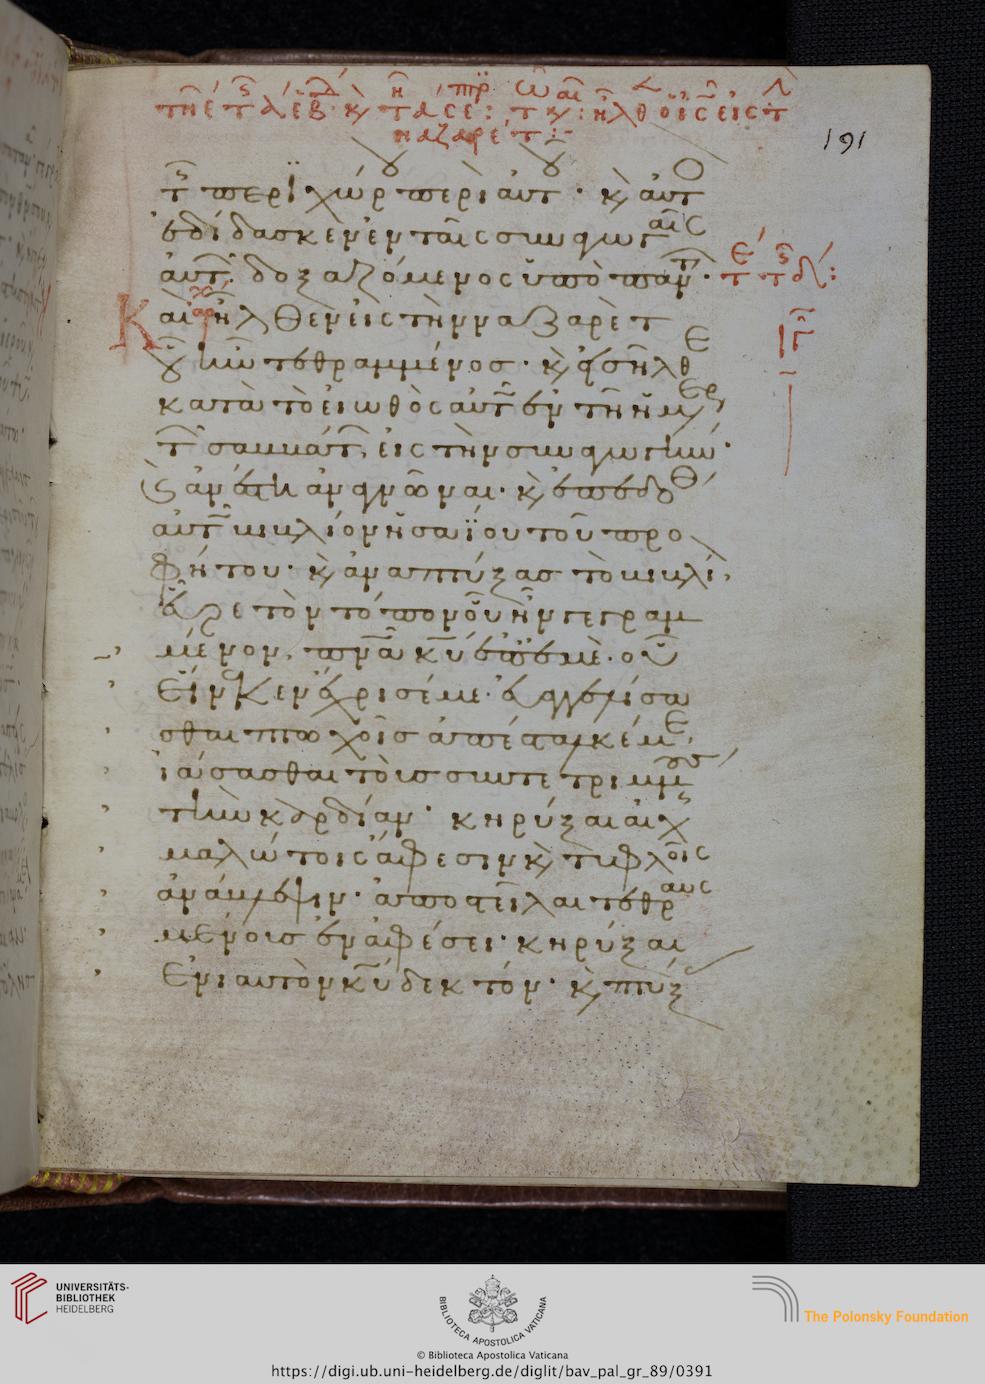 191
τῆς περιχώρου περὶ αὐτοῦ· κὶ αὐτὸς
ἐδίδασκεν ἐν ταῖς συναγωγαῖς
αὐτῶν δοξαζόμενος ὑπὸ πάντων·
Καὶ ἦλθεν εἰς τὴν ναζαρὲτ
οὗ ἦν τεθραμμένος· κὶ εἰσῆλθε
κατὰ τὸ εἰωθὸς αὐτῶ ἐν τῆ ἡμέρα
τῶν σαββάτων εἰς τὴν συναγωγὴν·
κὶ ἀνέστη ἀναγνῶναι· κὶ ἐπεδόθη
αὐτῶ βιβλίον ἠσαΐου τοῦ προ
φήτου· κὶ ἀναπτύξας τὸ βιβλίον
εὗρε τὸν τόπον οὗ ἦν γεγραμ
μένον· πνᾶ κῦ ἐπ' ἐμὲ· οὗ
εἵνεκεν ἔχρισέ με· εὐαγγελίσα
σθαι πτωχοῖς ἀπέσταλκέ με·
ἰάσασθαι τοὺς συντετριμμένους
τὴν καρδίαν· κηρύξαι αἰχ
μαλώτοις ἄφεσιν κὶ τυφλοῖς
ἀνάβλεψιν· ἀποστεῖλαι τεθραυσ
μένους ἐν ἀφέσει· κηρύξαι
ἐνιαυτὸν κῦ δεκτόν· κὶ πτύξας
UNIVERSITÄTS-
BIBLIOTHEK
HEIDELBERG
BIBLIOTECA APOSTOLICA VATICANA
The Polonsky Foundation
© Biblioteca Apostolica Vaticana
https://digi.ub.uni-heidelberg.de/diglit/bav_pal_gr_89/0391